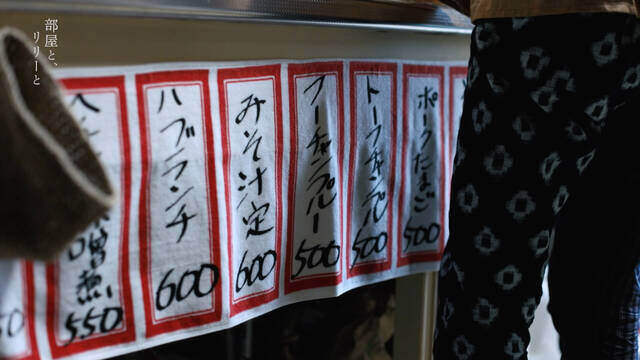 部屋と、
リリーと
ポークたまご
500
トーフチャンプル
500
フーチャンプルー
500
みそ汁定
600
ハブランチ
600
550